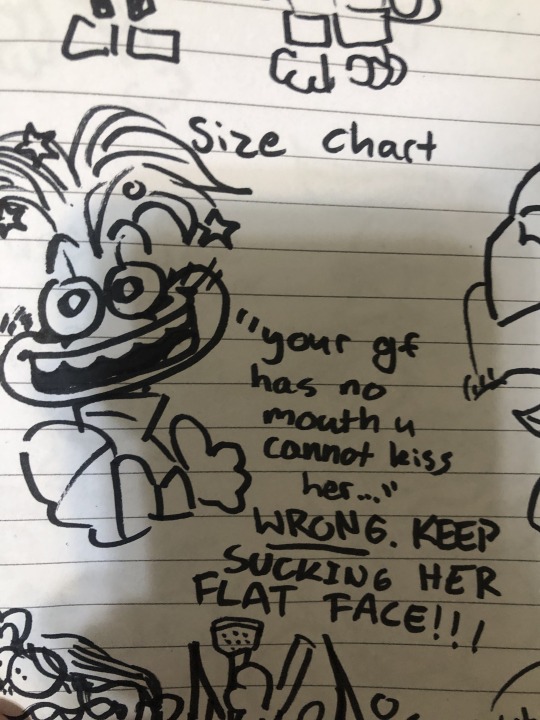 Size chart
"your gf
has no
mouth u
cannot kiss
her..."
WRONG. KEEP
SUCKING HER
FLAT FACE!!!